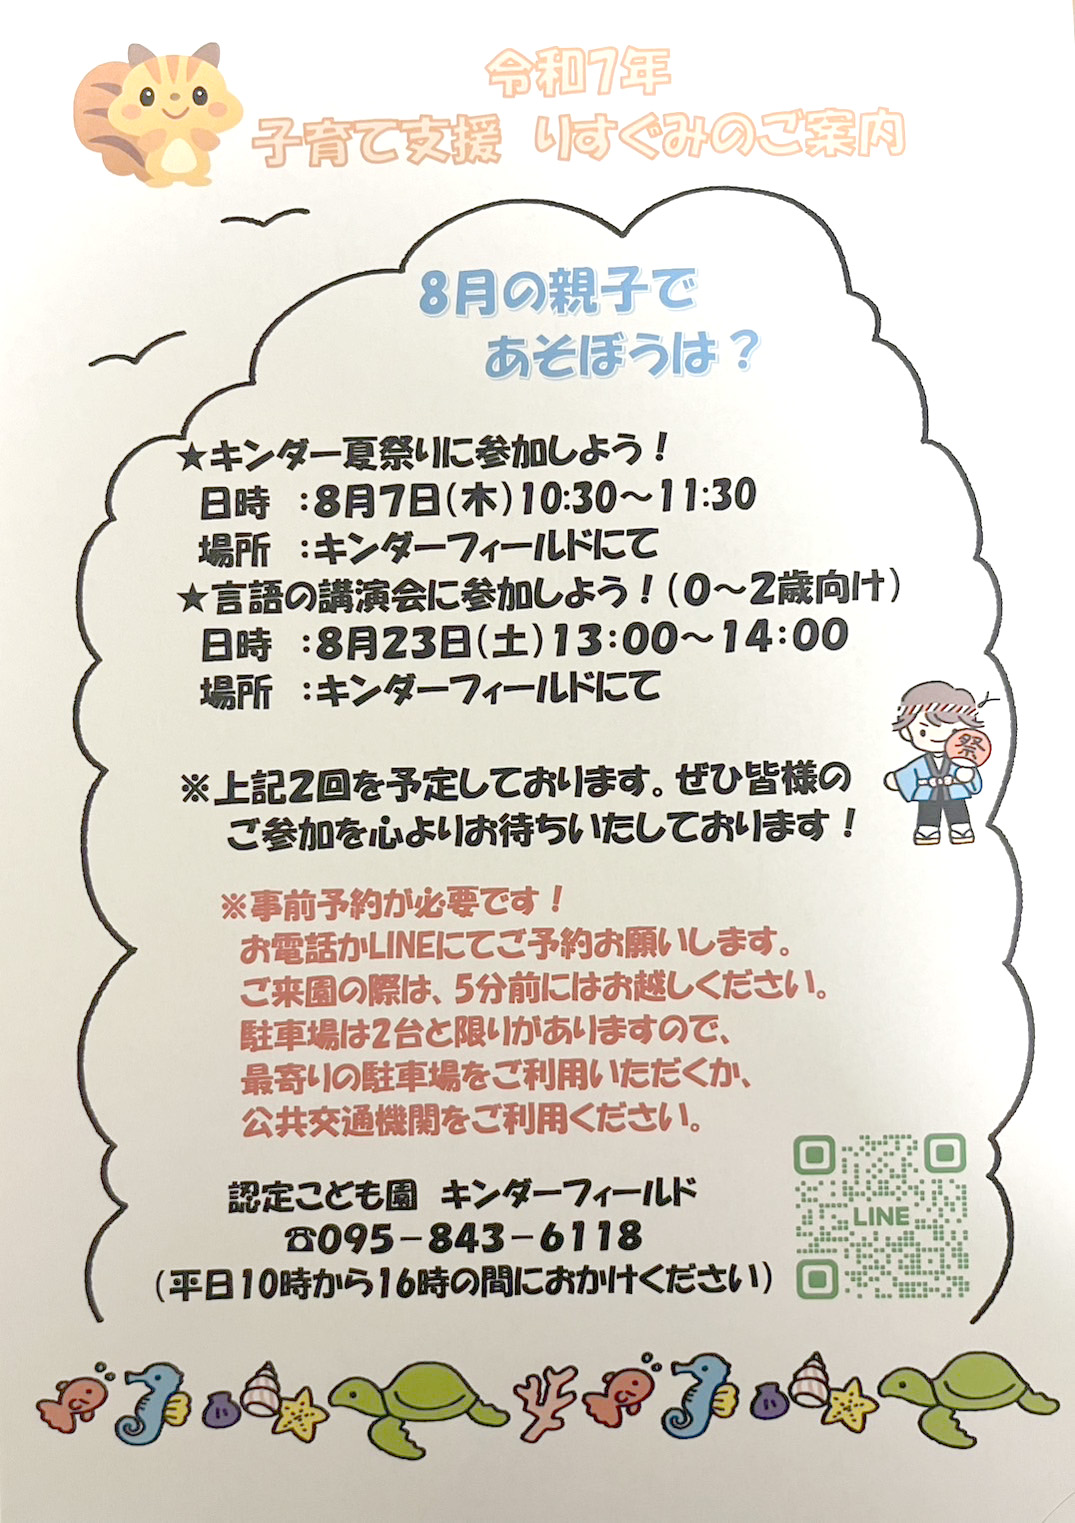 令和7年
子育て支援 りすぐみのご案内
8月の親子で
あそぼうは？
★キンダー夏祭りに参加しよう！
日時 ：8月7日(木)10:30～11:30
場所 ：キンダーフィールドにて
★言語の講演会に参加しよう！(0～2歳向け)
日時 ：8月23日(土)13：00～14：00
場所 ：キンダーフィールドにて
祭
※上記2回を予定しております。ぜひ皆様の
ご参加を心よりお待ちいたしております！
※事前予約が必要です！
お電話かLINEにてご予約お願いします。
ご来園の際は、5分前にはお越しください。
駐車場は2台と限りがありますので、
最寄りの駐車場をご利用いただくか、
公共交通機関をご利用ください。
認定こども園 キンダーフィールド
☎095－843－6118
(平日10時から16時の間におかけください)
LINE